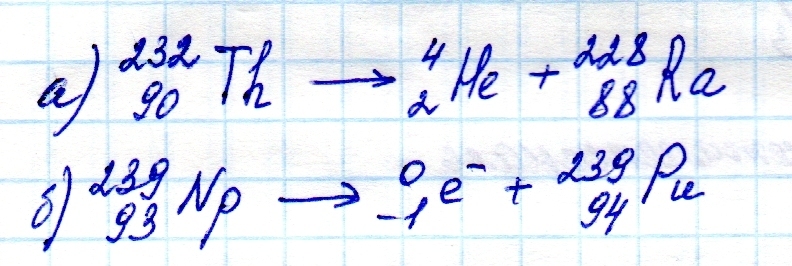 а) ²³²₉₀Th → ⁴₂He + ²²⁸₈₈Ra
б) ²³⁹₉₃Np → ⁰₋₁e⁻ + ²³⁹₉₄Pu